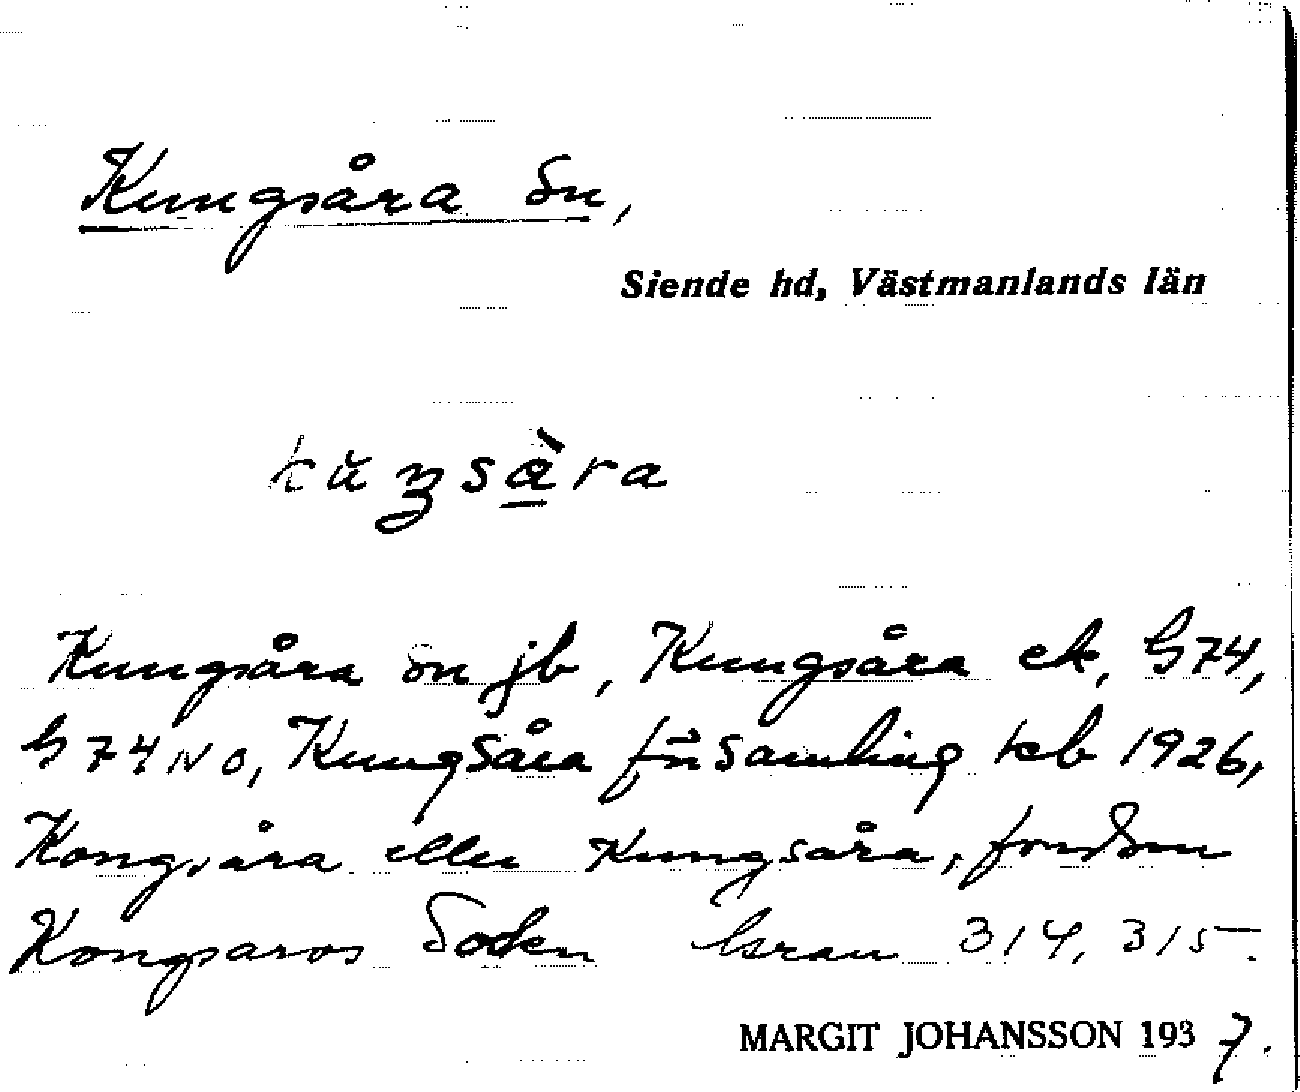 Kungsåra sn,
Siende hd, Västmanlands län
Kungsåra sn jb, Kungsåra ek, G74,
G74NO, Kungsåra församling kb 1926,
Kongsåra eller Kungsåra, fordom
Kongsaros Socken Grau 314, 315.
MARGIT JOHANSSON 1937.